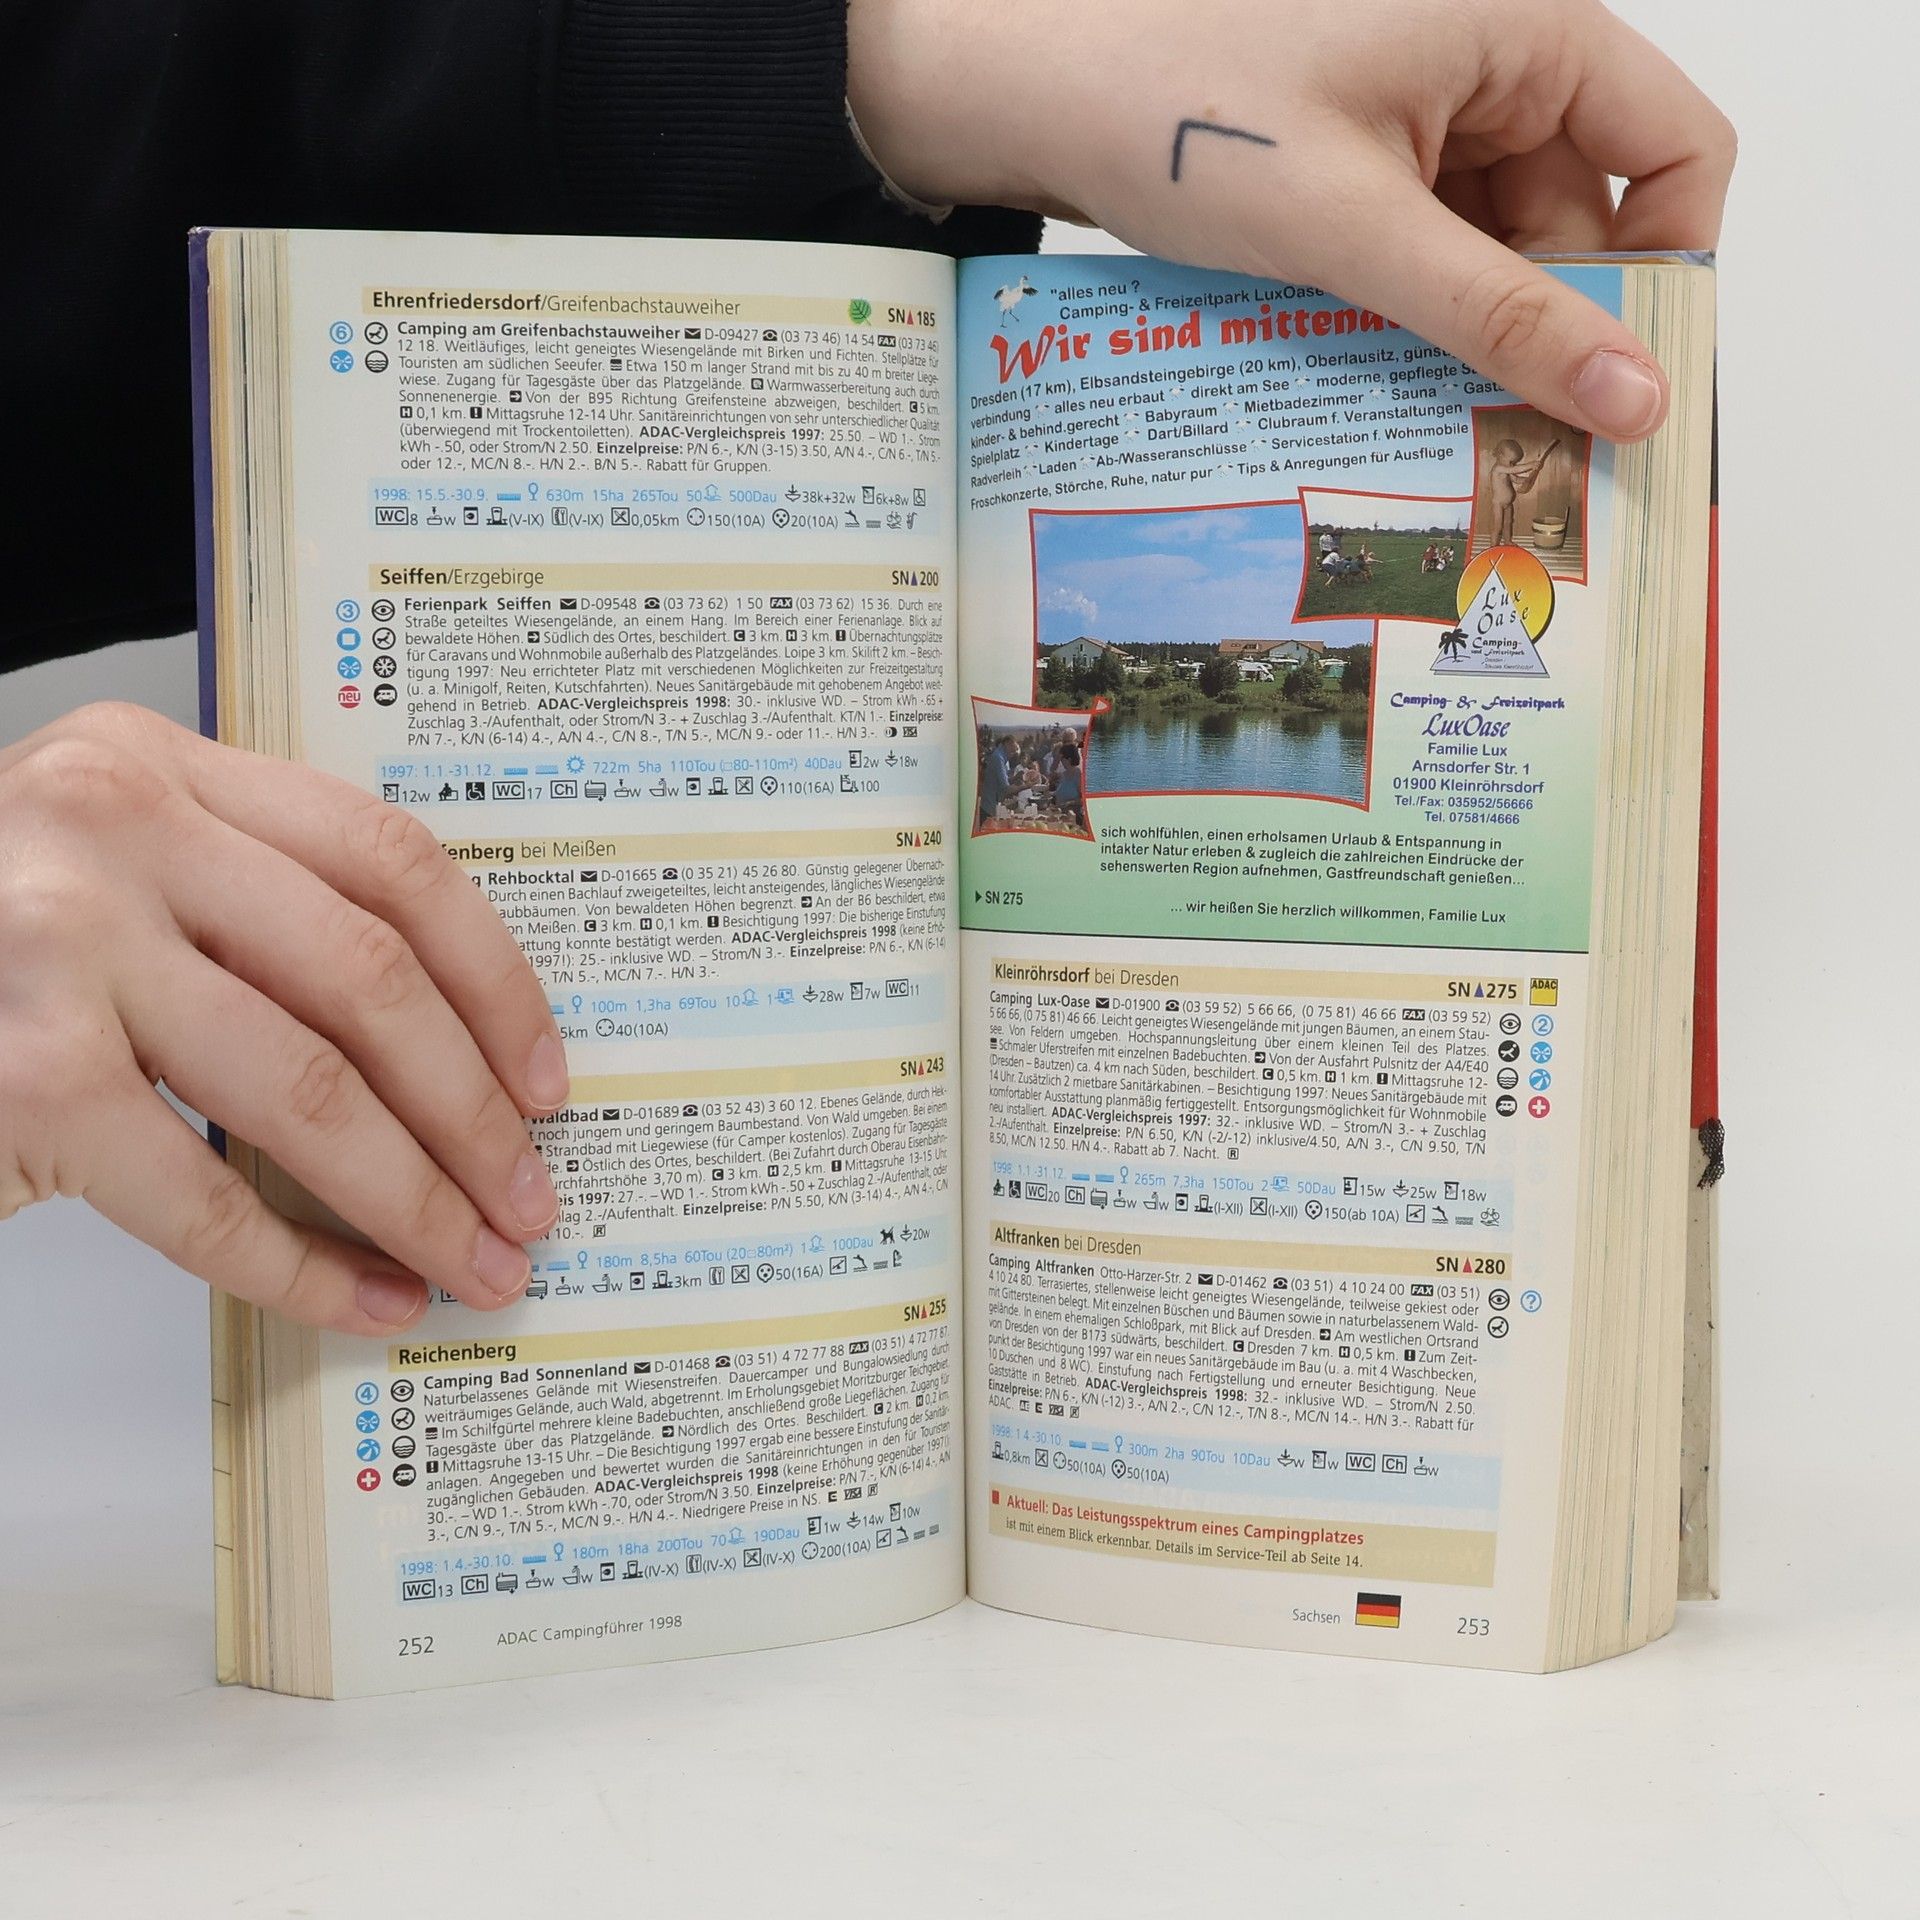 Ehrenfriedersdorf/Greifenbachstauweiher SN 185
Camping am Greifenbachstauweiher D-09427 (03 73 46) 14 54 FAX (03 73 46)
12 18. Weitläufiges, leicht geneigtes Wiesengelände mit Birken und Fichten. Stellplätze für
Touristen am südlichen Seeufer. Etwa 150 m langer Strand mit bis zu 40 m breiter Liege-
wiese. Zugang für Tagesgäste über das Platzgelände. Warmwasserbereitung auch durch
Sonnenenergie. Von der B95 Richtung Greifensteine abzweigen, beschildert. C 5 km.
H 0,1 km. Mittagsruhe 12-14 Uhr. Sanitäreinrichtungen von sehr unterschiedlicher Qualität
(überwiegend mit Trockentoiletten). ADAC-Vergleichspreis 1997: 25.50. – WD 1.-. Strom
kWh -.50, oder Strom/N 2.50. Einzelpreise: P/N 6.-, K/N (3-15) 3.50, A/N 4.-, C/N 6.-, T/N 5.-
oder 12.-, MC/N 8.-. H/N 2.-. B/N 5.-. Rabatt für Gruppen.
1998: 15.5.-30.9. 630m 15ha 265Tou 50 500Dau 38k+32w 6k+8w
WC 8 w (V-IX) (V-IX) 0,05km 150(10A) 20(10A)
Seiffen/Erzgebirge SN 200
Ferienpark Seiffen D-09548 (03 73 62) 1 50 FAX (03 73 62) 15 36. Durch eine
Straße geteiltes Wiesengelände, an einem Hang. Im Bereich einer Ferienanlage. Blick auf
bewaldete Höhen. Südlich des Ortes, beschildert. C 3 km. H 3 km. Übernachtungsplätze
für Caravans und Wohnmobile außerhalb des Platzgeländes. Loipe 3 km. Skilift 2 km. – Besich-
tigung 1997: Neu errichteter Platz mit verschiedenen Möglichkeiten zur Freizeitgestaltung
neu (u. a. Minigolf, Reiten, Kutschfahrten). Neues Sanitärgebäude mit gehobenem Angebot weit-
gehend in Betrieb. ADAC-Vergleichspreis 1998: 30.- inklusive WD. – Strom kWh -.65 +
Zuschlag 3.-/Aufenthalt, oder Strom/N 3.- + Zuschlag 3.-/Aufenthalt. KT/N 1.-. Einzelpreise:
P/N 7.-, K/N (6-14) 4.-, A/N 4.-, C/N 8.-, T/N 5.-, MC/N 9.- oder 11.-. H/N 3.-.
1997: 1.1.-31.12. 722m 5ha 110Tou (80-110m²) 40Dau 2w 18w
12w WC 17 Ch w w 110(16A) 100
enberg bei Meißen SN 240
Rehbocktal D-01665 (0 35 21) 45 26 80. Günstig gelegener Übernach-
Durch einen Bachlauf zweigeteiltes, leicht ansteigendes, längliches Wiesengelände
aubbäumen. Von bewaldeten Höhen begrenzt. An der B6 beschildert, etwa
on Meißen. C 3 km. H 0,1 km. Besichtigung 1997: Die bisherige Einstufung
attung konnte bestätigt werden. ADAC-Vergleichspreis 1998 (keine Erhö-
1997!): 25.- inklusive WD. – Strom/N 3.-. Einzelpreise: P/N 6.-, K/N (6-14)
, T/N 5.-, MC/N 7.-. H/N 3.-.
100m 1,3ha 69Tou 10 1 28w 7w WC 11
5km 40(10A)
SN 243
Waldbad D-01689 (03 52 43) 3 60 12. Ebenes Gelände, durch Hek-
t noch jungem und geringem Baumbestand. Von Wald umgeben. Bei einem
Strandbad mit Liegewiese (für Camper kostenlos). Zugang für Tagesgäste
de. Östlich des Ortes, beschildert. (Bei Zufahrt durch Oberau Eisenbahn-
urchfahrtshöhe 3,70 m). C 3 km. H 2,5 km. Mittagsruhe 13-15 Uhr.
eis 1997: 27.-. – WD 1.-. Strom kWh -.50 + Zuschlag 2.-/Aufenthalt, oder
lag 2.-/Aufenthalt. Einzelpreise: P/N 5.50, K/N (3-14) 4.-, A/N 4.-, C/N
N 10.-. R
180m 8,5ha 60Tou (20 80m²) 1 100Dau 20w
w w 3km 50(16A)
Reichenberg SN 255
Camping Bad Sonnenland D-01468 (03 51) 4 72 77 88 FAX (03 51) 4 72 77 87.
Naturbelassenes Gelände mit Wiesenstreifen. Dauercamper und Bungalowsiedlung durch
weiträumiges Gelände, auch Wald, abgetrennt. Im Erholungsgebiet Moritzburger Teichgebiet.
Im Schilfgürtel mehrere kleine Badebuchten, anschließend große Liegeflächen. Zugang für
Tagesgäste über das Platzgelände. Nördlich des Ortes. Beschildert. C 2 km. H 0,2 km.
Mittagsruhe 13-15 Uhr. – Die Besichtigung 1997 ergab eine bessere Einstufung der Sanitär-
anlagen. Angegeben und bewertet wurden die Sanitäreinrichtungen in den für Touristen
zugänglichen Gebäuden. ADAC-Vergleichspreis 1998 (keine Erhöhung gegenüber 1997!):
30.-. – WD 1.-. Strom kWh -.70, oder Strom/N 3.50. Einzelpreise: P/N 7.-, K/N (6-14) 4.-, A/N
3.-, C/N 9.-, T/N 5.-, MC/N 9.-. H/N 4.-. Niedrigere Preise in NS. E VISA R
1998: 1.4.-30.10. 180m 18ha 200Tou 70 190Dau 1w 14w 10w
WC 13 Ch w w (IV-X) (IV-X) (IV-X) 200(10A)
252 ADAC Campingführer 1998
"alles neu ?
Camping- & Freizeitpark LuxOase
Wir sind mittend
Dresden (17 km), Elbsandsteingebirge (20 km), Oberlausitz,
verbindung alles neu erbaut direkt am See moderne, gepflegte
kinder- & behind.gerecht Babyraum Mietbadezimmer Sauna
Spielplatz Kindertage Dart/Billard Clubraum f. Veranstaltungen
Radverleih Laden Ab-/Wasseranschlüsse Servicestation f. Wohnmobile
Froschkonzerte, Störche, Ruhe, natur pur Tips & Anregungen für Ausflüge
Lux
Oase
Camping-
und Freizeitpark
Camping- & Freizeitpark
LuxOase
Familie Lux
Arnsdorfer Str. 1
01900 Kleinröhrsdorf
Tel./Fax: 035952/56666
Tel. 07581/4666
sich wohlfühlen, einen erholsamen Urlaub & Entspannung in
intakter Natur erleben & zugleich die zahlreichen Eindrücke der
sehenswerten Region aufnehmen, Gastfreundschaft genießen...
SN 275
... wir heißen Sie herzlich willkommen, Familie Lux
Kleinröhrsdorf bei Dresden SN 275 ADAC
Camping Lux-Oase D-01900 (03 59 52) 5 66 66, (0 75 81) 46 66 FAX (03 59 52)
5 66 66, (0 75 81) 46 66. Leicht geneigtes Wiesengelände mit jungen Bäumen, an einem Stau-
see. Von Feldern umgeben. Hochspannungsleitung über einem kleinen Teil des Platzes.
Schmaler Uferstreifen mit einzelnen Badebuchten. Von der Ausfahrt Pulsnitz der A4/E40
(Dresden – Bautzen) ca. 4 km nach Süden, beschildert. C 0,5 km. H 1 km. Mittagsruhe 12-
14 Uhr. Zusätzlich 2 mietbare Sanitärkabinen. – Besichtigung 1997: Neues Sanitärgebäude mit
komfortabler Ausstattung planmäßig fertiggestellt. Entsorgungsmöglichkeit für Wohnmobile
neu installiert. ADAC-Vergleichspreis 1997: 32.- inklusive WD. – Strom/N 3.- + Zuschlag
2.-/Aufenthalt. Einzelpreise: P/N 6.50, K/N (-2/-12) inklusive/4.50, A/N 3.-, C/N 9.50, T/N
8.50, MC/N 12.50. H/N 4.-. Rabatt ab 7. Nacht. R
1998: 1.1.-31.12. 265m 7,3ha 150Tou 2 50Dau 15w 25w 18w
WC 20 Ch w w (I-XII) (I-XII) 150(ab 10A)
Altfranken bei Dresden SN 280
Camping Altfranken Otto-Harzer-Str. 2 D-01462 (03 51) 4 10 24 00 FAX (03 51)
4 10 24 80. Terrasiertes, stellenweise leicht geneigtes Wiesengelände, teilweise gekiest oder
mit Gittersteinen belegt. Mit einzelnen Büschen und Bäumen sowie in naturbelassenem Wald-
gelände. In einem ehemaligen Schloßpark, mit Blick auf Dresden. Am westlichen Ortsrand
von Dresden von der B173 südwärts, beschildert. C Dresden 7 km. H 0,5 km. Zum Zeit-
punkt der Besichtigung 1997 war ein neues Sanitärgebäude im Bau (u. a. mit 4 Waschbecken,
10 Duschen und 8 WC). Einstufung nach Fertigstellung und erneuter Besichtigung. Neue
Gaststätte in Betrieb. ADAC-Vergleichspreis 1998: 32.- inklusive WD. – Strom/N 2.50.
Einzelpreise: P/N 6.-, K/N (-12) 3.-, A/N 2.-, C/N 12.-, T/N 8.-, MC/N 14.-. H/N 3.-. Rabatt für
ADAC. AE E VISA R
1998: 1.4.-30.10. 300m 2ha 90Tou 10Dau w w WC Ch w
0,8km 50(10A) 50(10A)
Aktuell: Das Leistungsspektrum eines Campingplatzes
ist mit einem Blick erkennbar. Details im Service-Teil ab Seite 14.
Sachsen 253